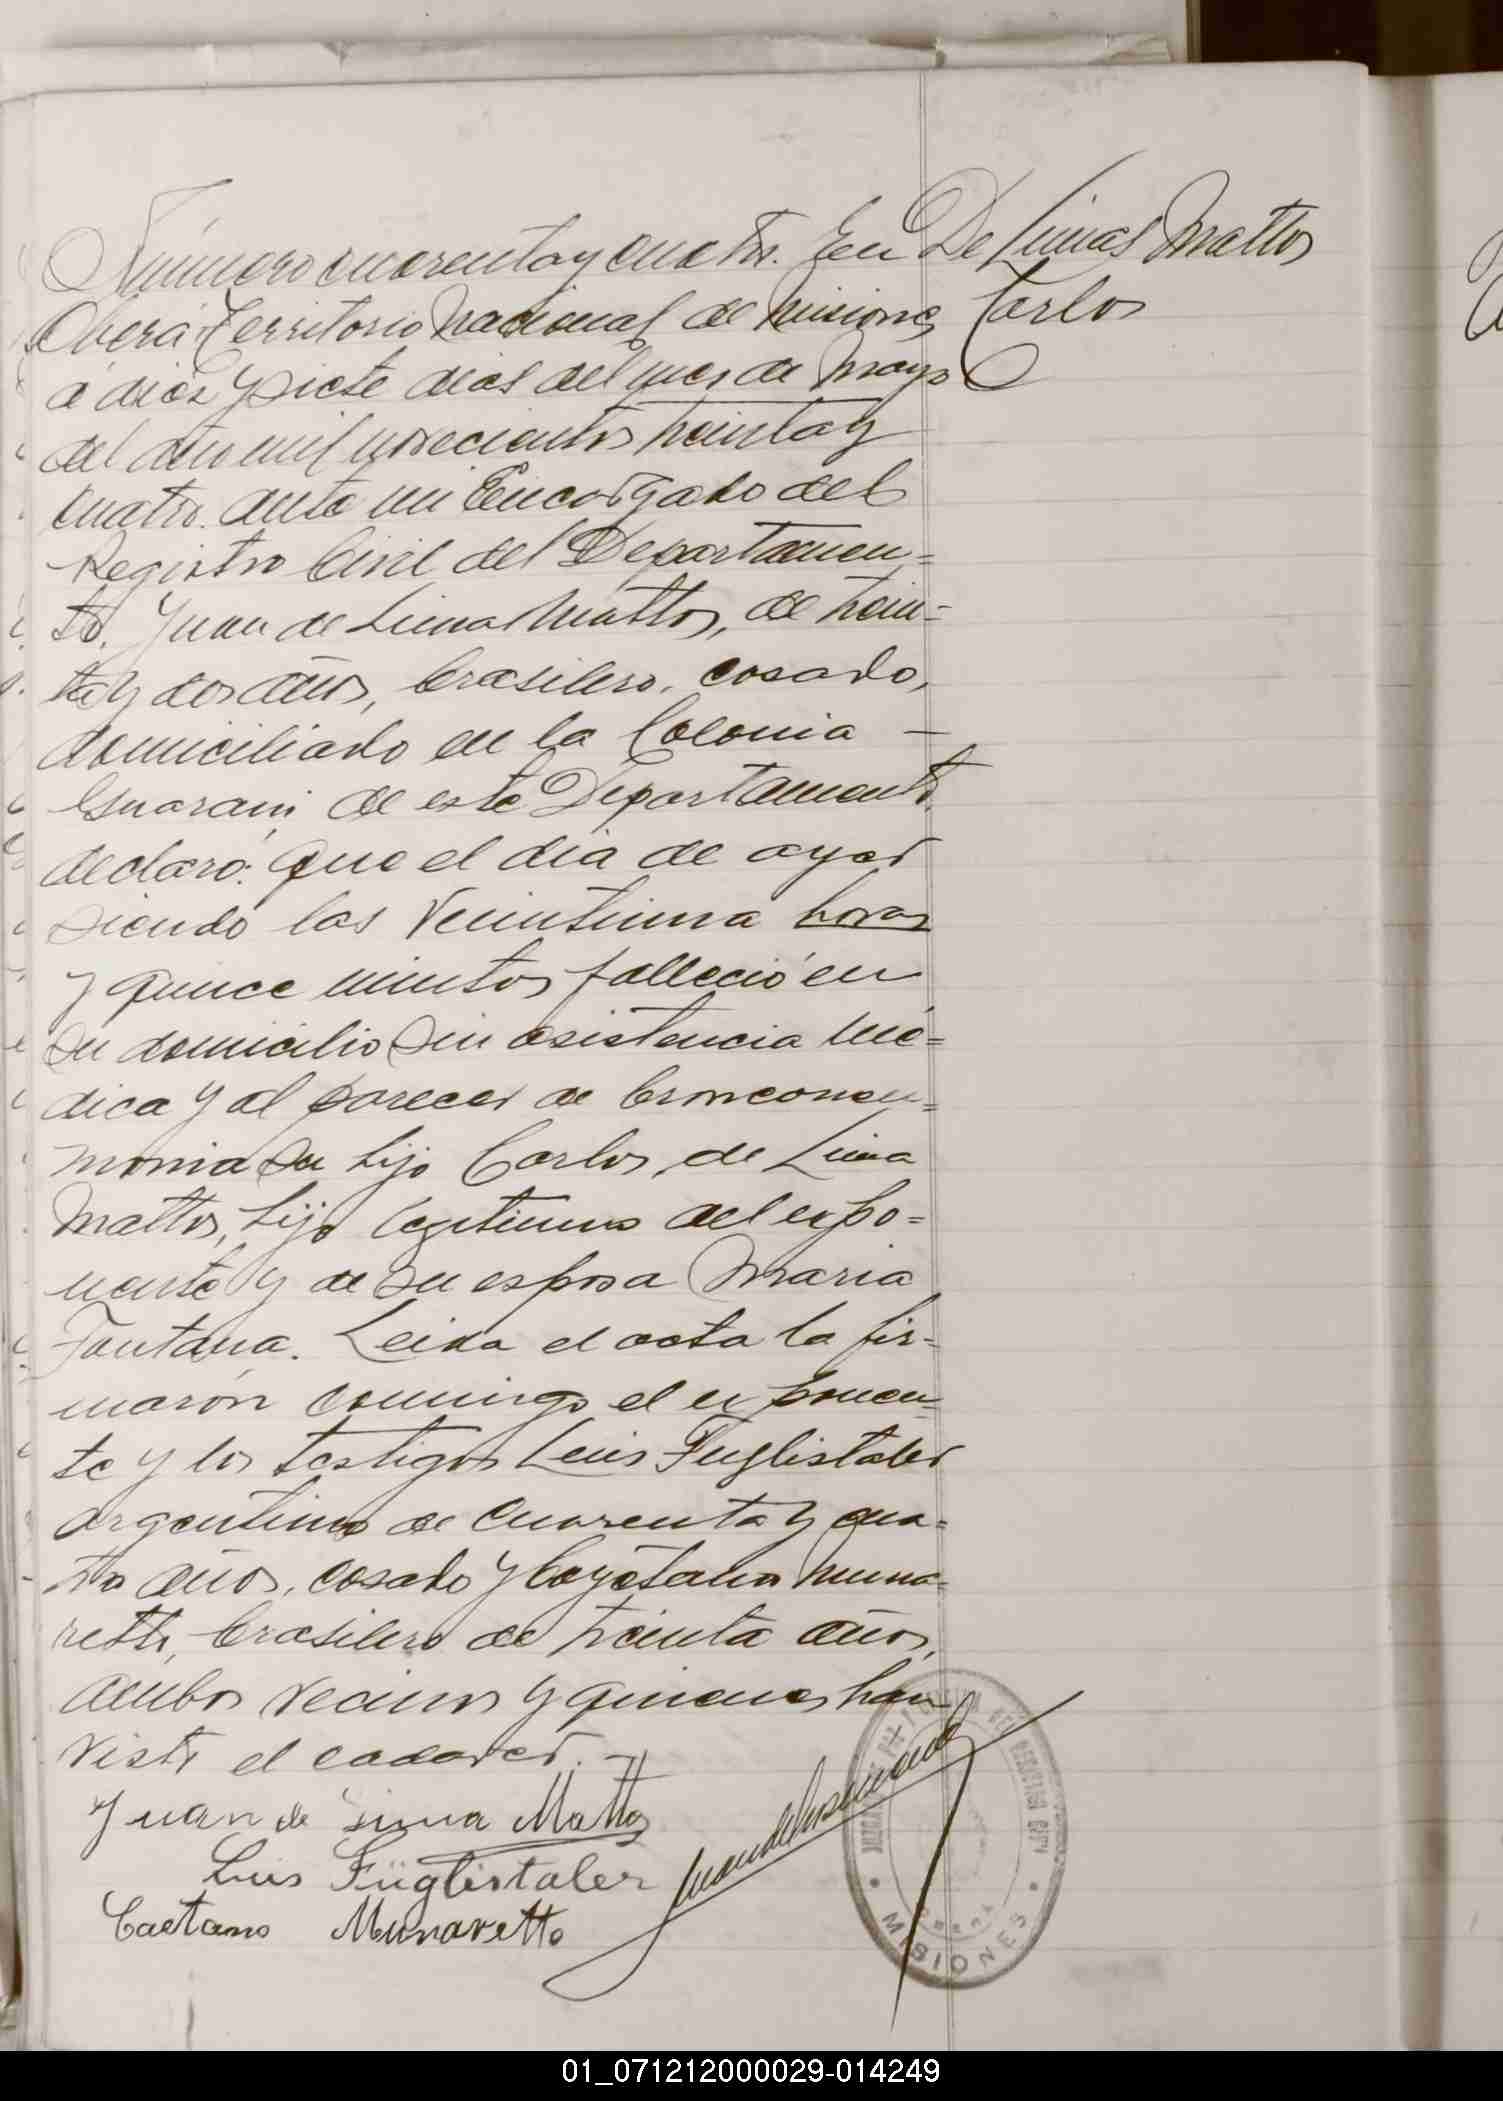 Número cuarenta y cuatro. En
De Limas Mattos
Carlos
Oberá Territorio Nacional de Misiones
á diez y siete dias del mes de Mayo
del año mil novecientos treinta y
cuatro. ante mi Encargado del
Registro Civil del Departamen=
to. Juan de Lima Mattos, de trein=
ta y dos años, brasilero, casado,
domiciliado en la Colonia —
Guarani de este Departamento
declaró: Que el dia de ayer
siendo las veintiuna horas
y quince minutos falleció en
su domicilio sin asistencia mé=
dica y al parecer de bronconeu=
monia su hijo Carlos de Lima
Mattos, hijo legitimo del expo=
nente y de su esposa Maria
Fontana. Leida el acta la fir=
marón conmigo el exponen=
te y los testigos Luis Fuglistaler
argentino de cuarenta y cua=
tro años, casado y Cayetano Muna=
retto, brasilero de treinta años,
ambos vecinos y quienes han
visto el cadaver. —
Juan de Lima Mattos
Luis Füglistaler
Caetano Munaretto
REGISTRO CIVIL
OBERÁ
• MISIONES •
01_071212000029-014249